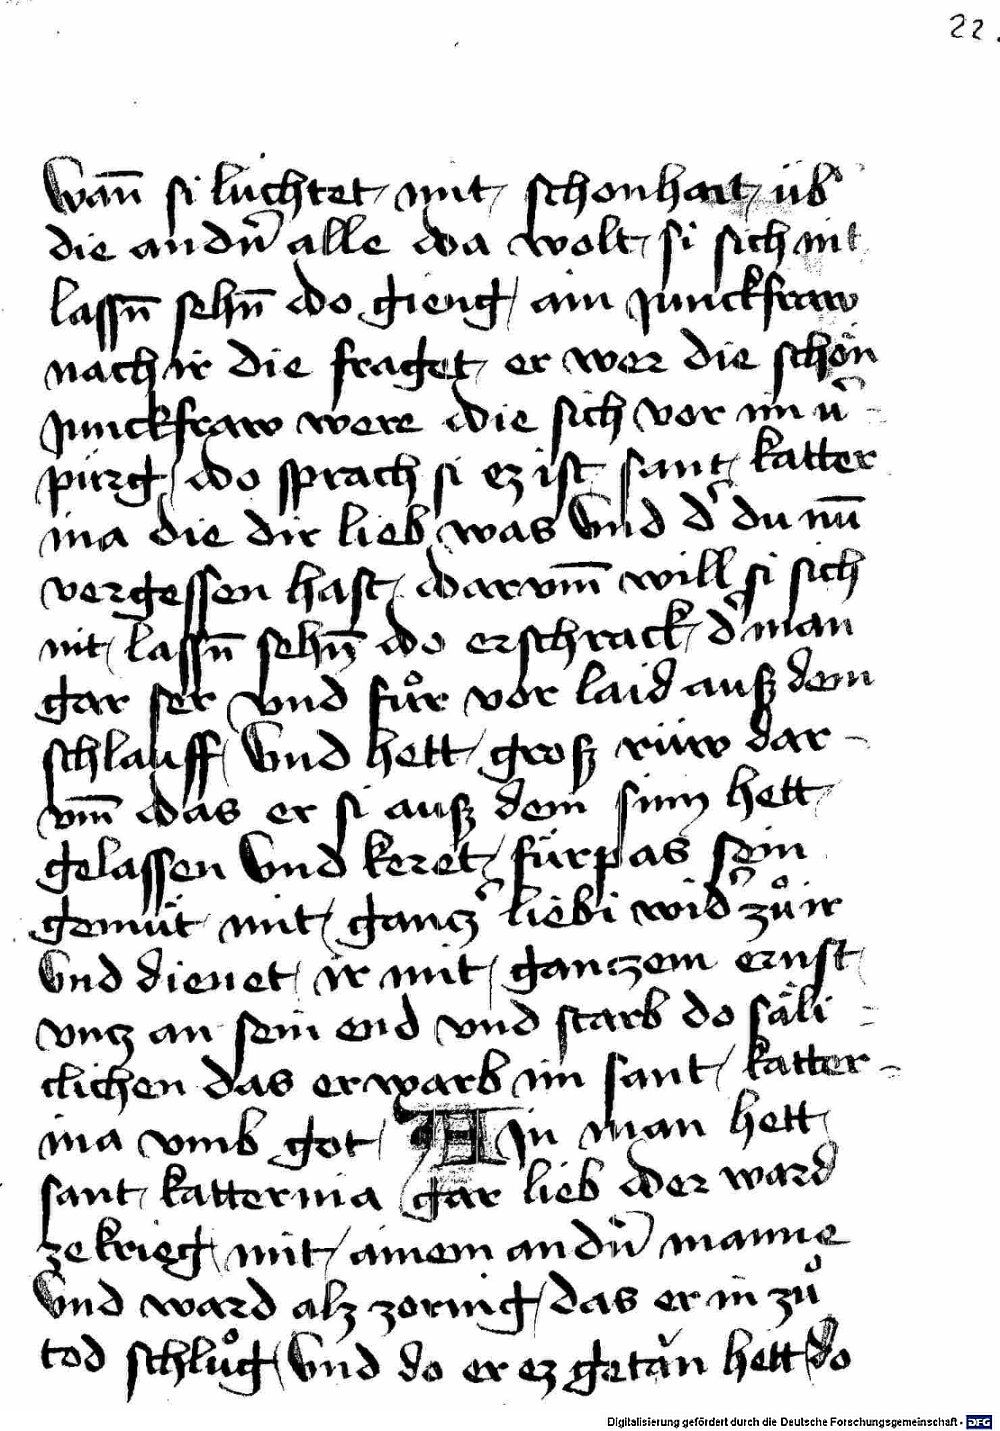 22.
Wan̄ si lúchtet mit schonhait úb̾
die andn̄ alle da wolt si sich nit
lassn̄ sehn̄ do gieng ain junckfraw
nach ir die fraget er wer die schön
junckfraw were die sich vor im v̾ -
pirg do sprach si ez ist sant katter
ina die dir lieb was Vnd d̾ du nū
vergessen hast darvm̄ will si sich
nit lassn̄ sehn̄ do erschrack d̾ man
gar ser vnd fůr vor laid ausz dem
schlauff Vnd hett grosz rüw dar -
vm̄ das er si ausz dem sinn hett
gelassen Vnd keret fürpas sein
gemüt mit gancz̾ liebi wid̾ zů ir
Vnd dienet ir mit ganczem ernst
vncz an sein end vnd starb do säli -
clichen das erwarb im sant katter -
ina vmb got Ain man hett
sant katterina gar lieb der ward
ze krieg mit ainem andn̄ manne
Vnd ward alz zornig das er in zů
tod schlůg Vnd do er ez getän hett do
Digitalisierung gefördert durch die Deutsche Forschungsgemeinschaft - DFG